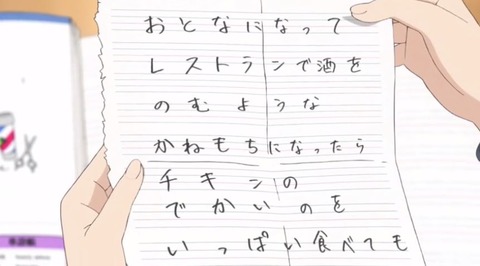 おとなになって
レストランで酒を
のむような
かねもちになったら
チキンの
でかいのを
いっぱい食べても